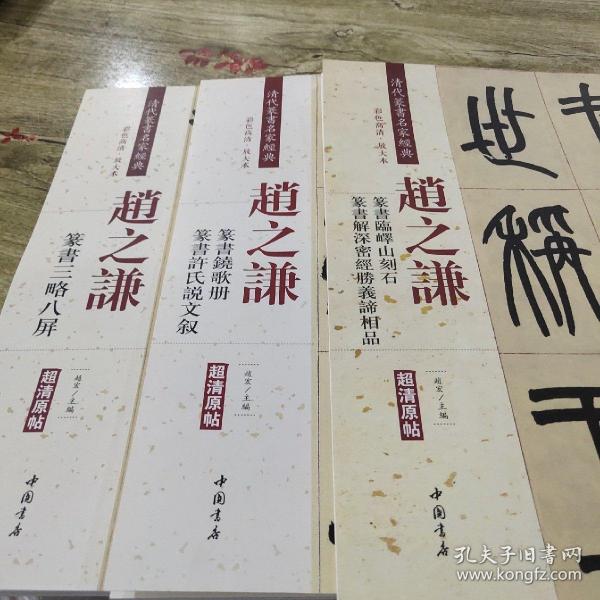 清代篆書名家經典
彩色高清 放大本
趙之謙
篆書三略八屏
趙宏/主編
超清原帖
中国書店
清代篆書名家經典
彩色高清 放大本
趙之謙
篆書鐃歌册
篆書許氏説文叙
趙宏/主編
超清原帖
中国書店
清代篆書名家經典
彩色高清 放大本
趙之謙
篆書臨嶧山刻石
篆書解深密經勝義諦相品
趙宏/主編
超清原帖
中国書店
世稱王
孔夫子旧书网
www.kongfz.com